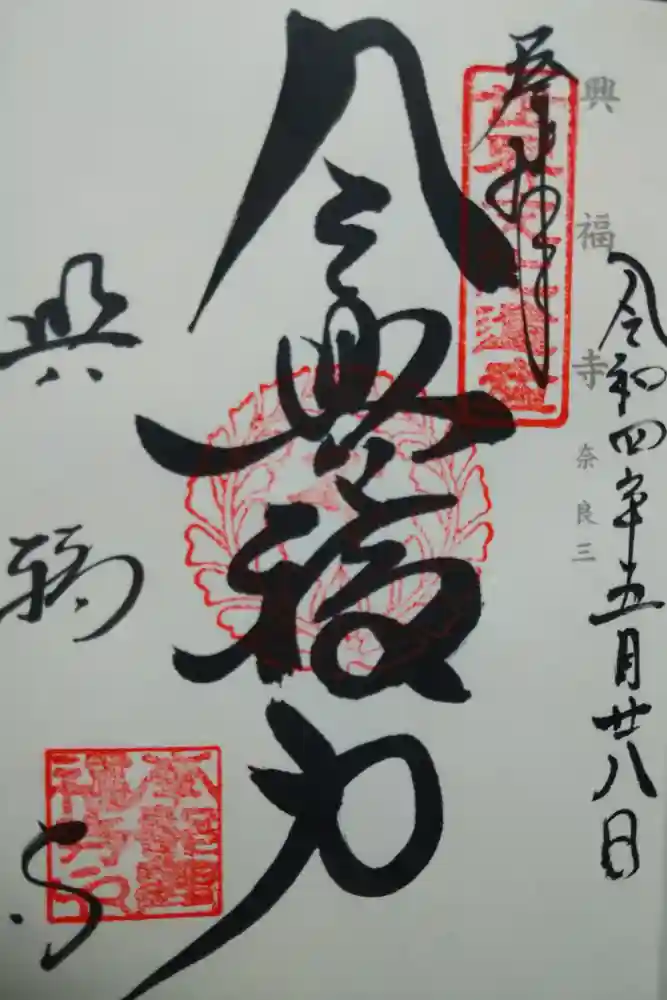 令和四年五月廿八日
興福寺 奈良三
拝
令興福力
興福寺